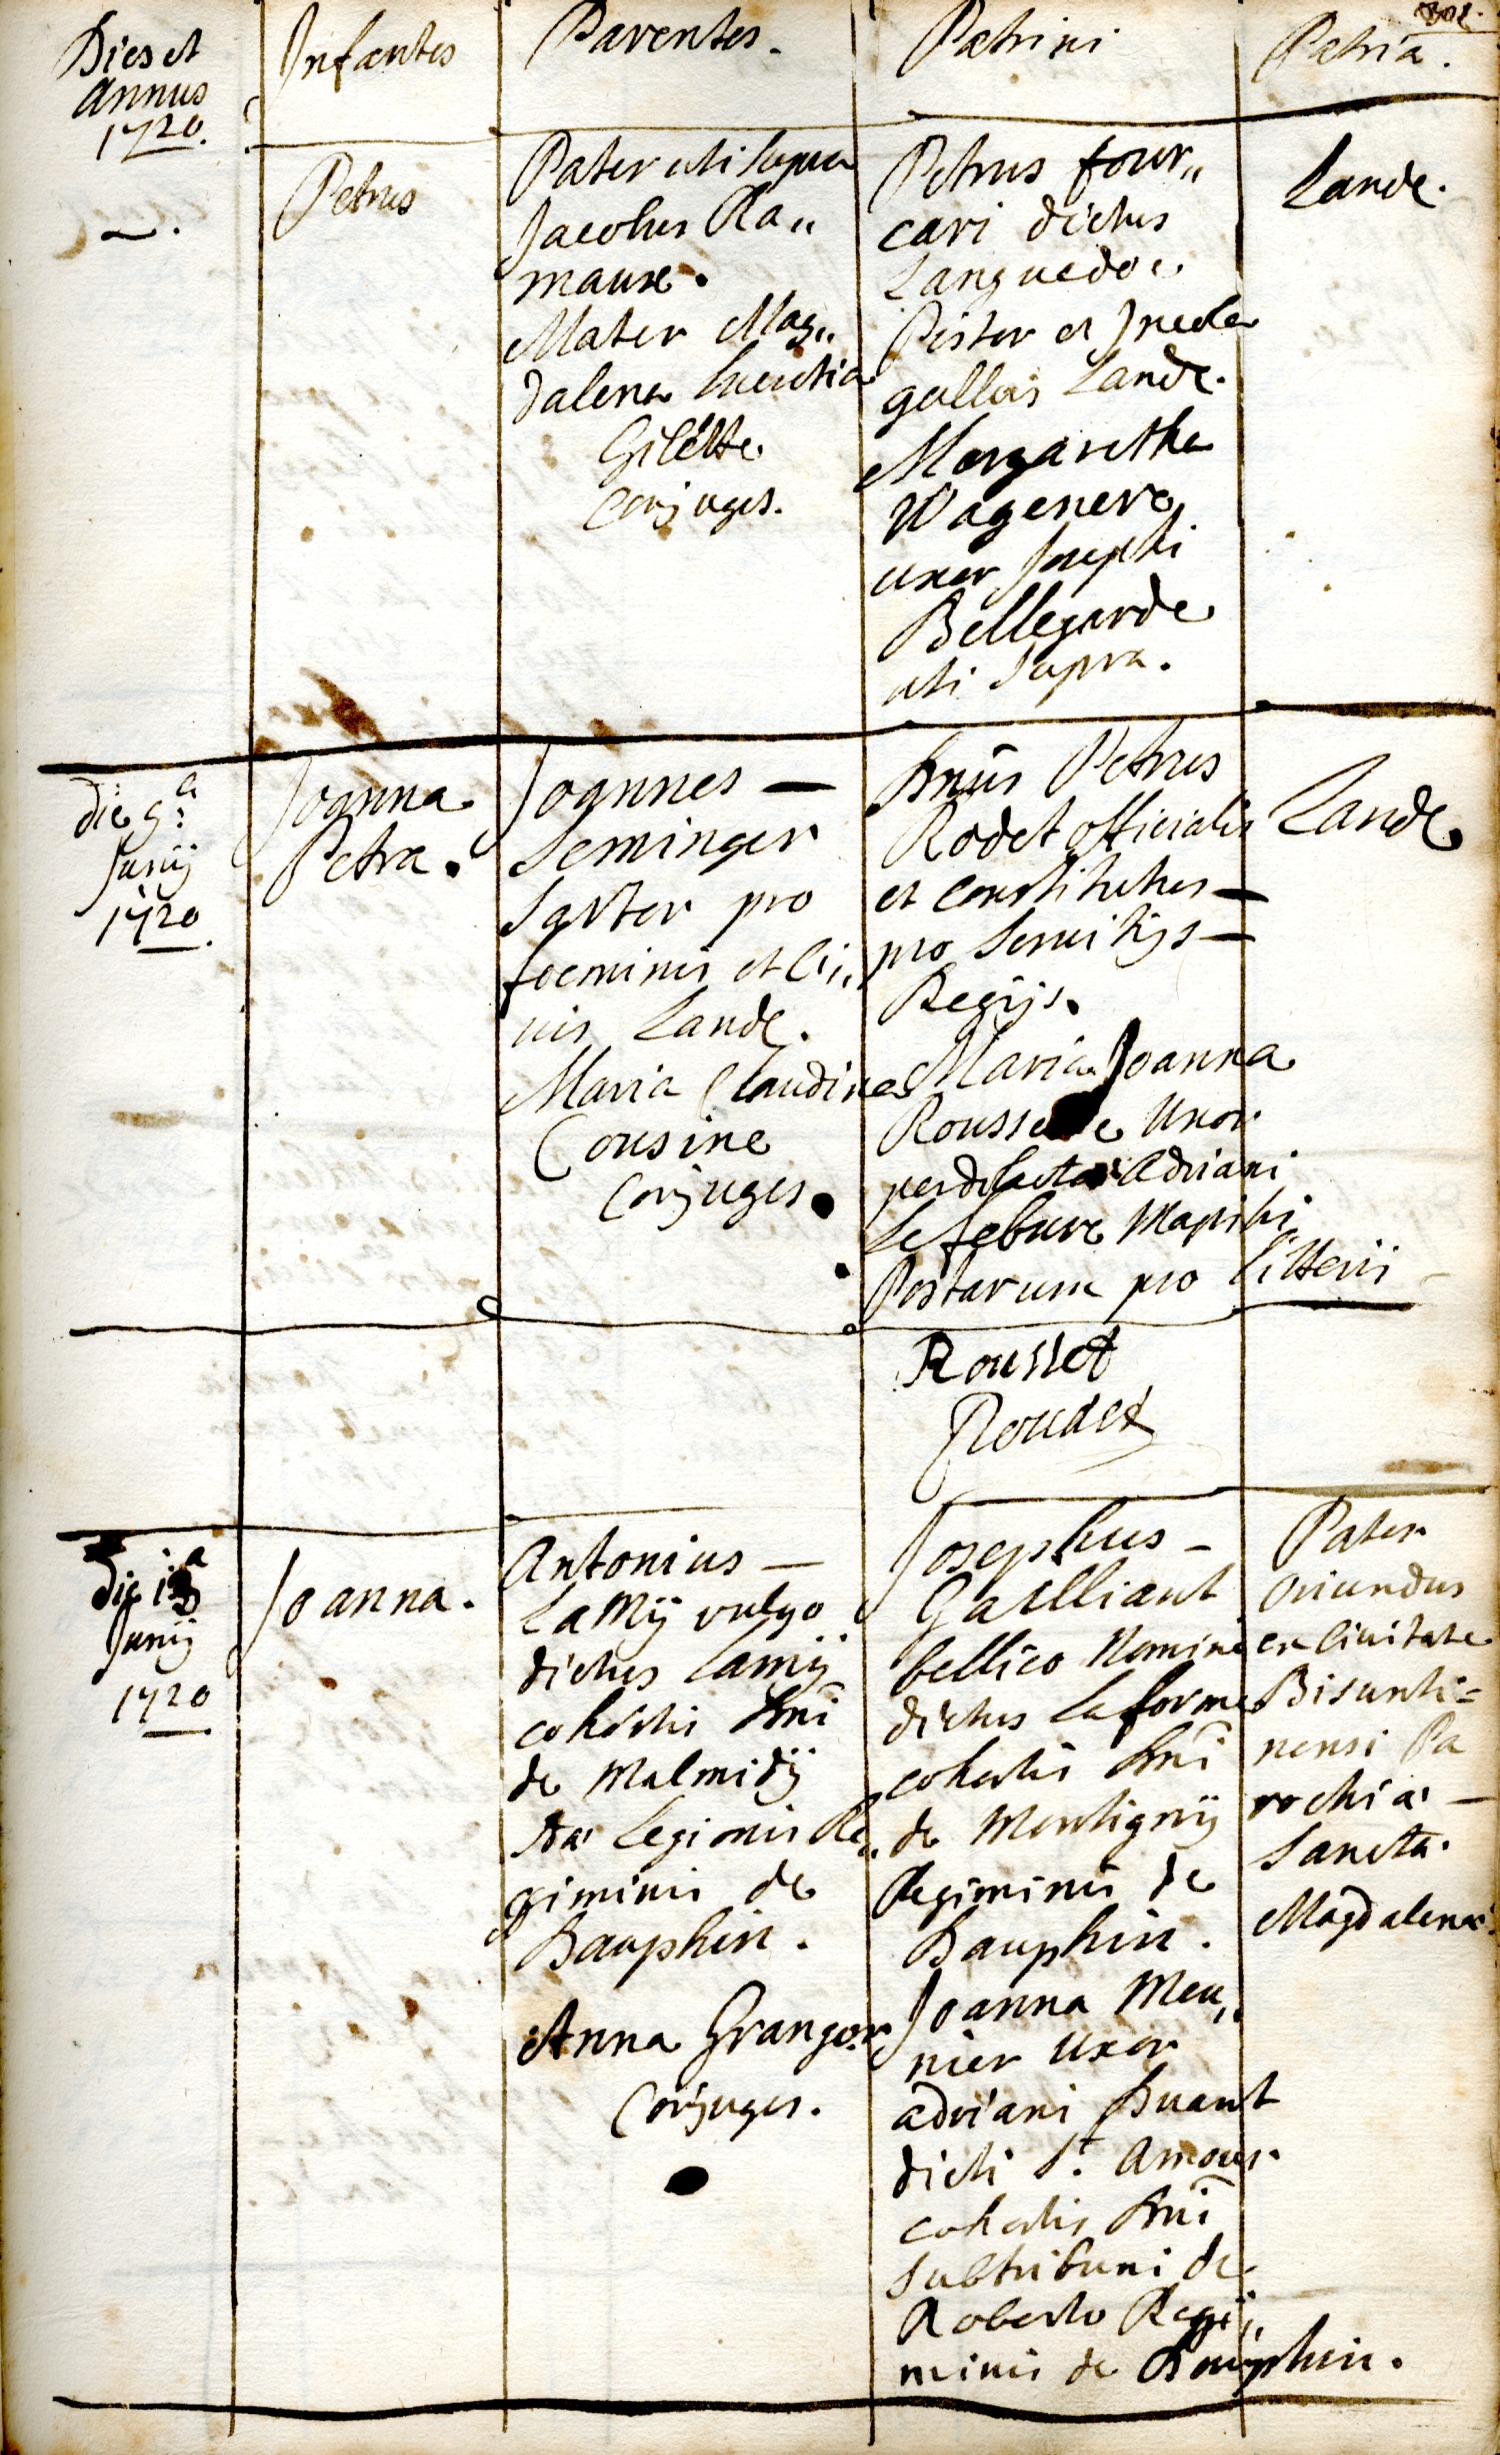 301.
Dies et
annus
1720.
Infantes
Parentes.
Patrini
Patria.
Petrus
Pater uti supra
Jacobus Ra,,
maux.
Mater Mag,,
dalena Lucretia
Gilétte
Conjuges.
Petrus four,,
cari dictus
Languedoc
Pistor et Incola
gallois Landę.
Margaretha
Wagenere
uxor Josephi
Bellegarde
uti supra.
Landę.
die 9ª
Junij
1720.
Joanna
Petra.
Joannes —
Seminger
Sartor pro
foeminis et Ci,,
vis Landę.
Maria Claudine
Cousine
Conjuges.
Dnūs Petrus
Rodet officialis
et constitutus —
pro Servitijs —
Regijs.
Maria Joanna
Uxor
Adriani
Lefebure
Postarum pro litteris
Landę
Rousset
Roudet
die
Junij
1720
Joanna.
Antonius —
Lamÿ vulgo
dictus Lamÿ
cohortis Dnī
de Malmidÿ
Legionis Re,,
giminis de
Dauphin.
Anna Granger
Conjuges.
Josephus —
Gailliant
bellico Nomine
dictus Laforme
cohortis Dnī
de Montignÿ
Regiminis de
Dauphin.
Joanna Meu,,
nier uxor
adriani Duant
dicti St. Amour
cohortis Dnī
subtribuni de
Roberto Regi,,
minis de Dauphin.
Pater
oriundus
ex Civitate
Bisunti=
nensi Pa
rochia —
Sancta
Magdalena.